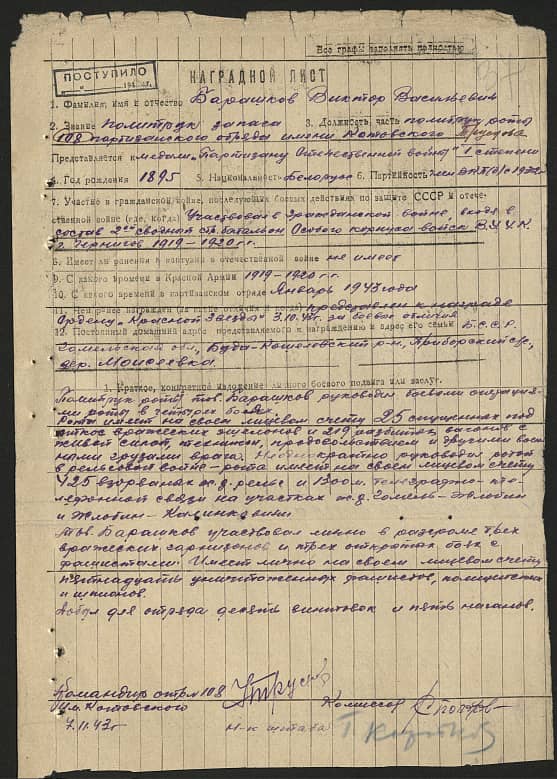 Все графы заполнять полностью
ПОСТУПИЛО
194 г.
НАГРАДНОЙ ЛИСТ
1. Фамилия, имя и отчество Барашков Виктор Васильевич
2. Звание политрук запаса 3. Должность, часть политрук роты
108 партизанского отряда имени Котовского
Представляется к медали "Партизану Отечественной войны" 1 степени
4. Год рождения 1895 5. Национальность белорус 6. Партийность
7. Участие в гражданской войне, последующих боевых действиях по защите СССР и отече-
ственной войне (где, когда) Участвовал в гражданской войне, входя в
состав 2ой сводный стр. батальон Особого корпуса войск
г. Чернигов 1919-1920 г.г.
8. Имеет ли ранения и контузии в отечественной войне не имеет
9. С какого времени в Красной Армии 1919-1920 г.г.
10. С какого времени в партизанском отряде Январь 1943 года
11. Чем ранее награжден (за какие отличия и когда) представлен к награде
Ордену "Красной Звезды" 3.10.43г. за боевые отличия
12. Постоянный домашний адрес представляемого к награждению и адрес его семьи Б.С.С.Р.
Гомельская обл., Буда-Кошелевский р-н, Приборский с/с,
дер. Моисеевка.
1. Краткое, конкретное изложение личного боевого подвига или заслуг.
Политрук роты тов. Барашков руководил боевыми операция-
ми роты в четырех боевых.
Рота имеет на своем лицевом счету 25 спущенных под
откос вражеских эшелонов и 219 разбитых вагонов с
живой силой, техникой, продовольствием и другими воен-
ными грузами врага. Неоднократно руководил ротой
в рельсовой войне - рота имеет на своем лицевом счету
425 взорванных ж.д. рельс и 1300 м. телеграфно-те-
лефонной связи на участках ж.д. Гомель-Жлобин
и Жлобин-Калинковичи
Тов. Барашков участвовал лично в разгроме трех
вражеских гарнизонов и трех открытых боях с
фашистами. Имеет лично на своем лицевом счету
пятнадцать уничтоженных фашистов, полицейских
и шпионов.
Добыл для отряда десять винтовок и пять наганов.
Командир отр. 108
им. Котовского
Комиссар
7.11.43г
Н-к штаба